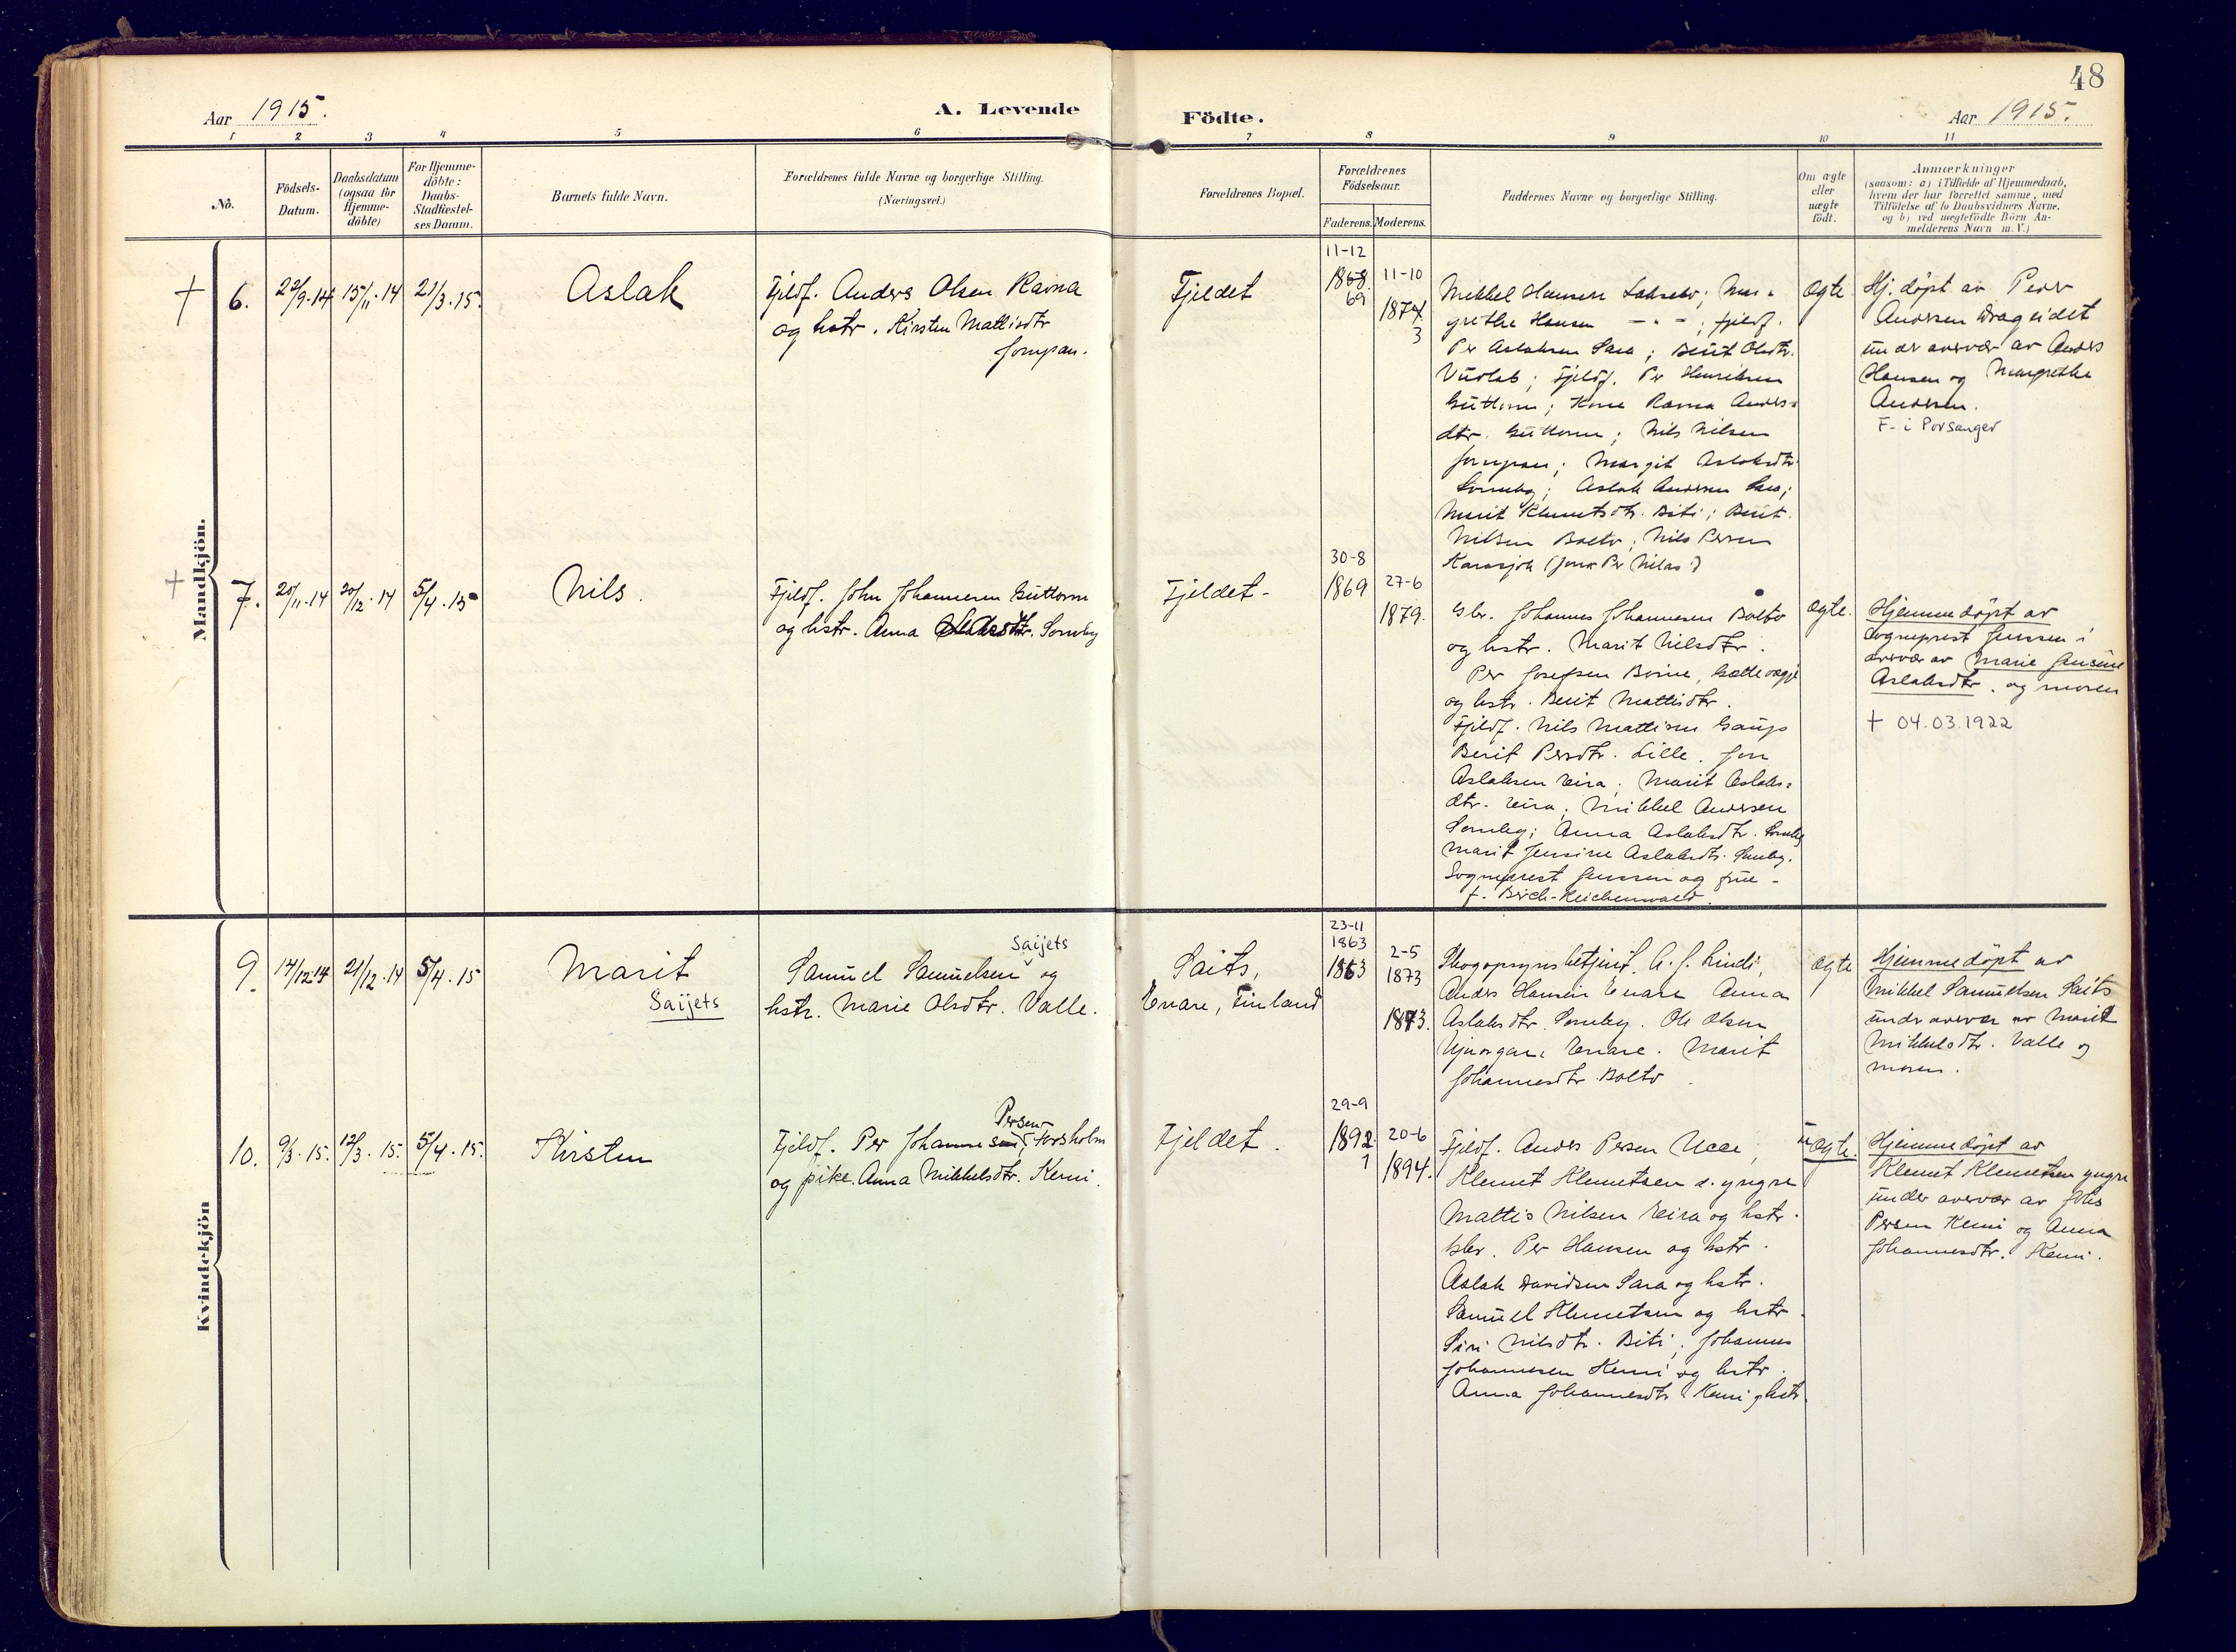 48
Aar 1915.
A. Levende
Födte.
Aar 1915.
1 2 3 4 5 6 7 8 9 10 11
No.
Födsels-
Datum.
Daabsdatum
(ogsaa for
Hjemme-
döbte)
For Hjemme-
döbte:
Daabs-
Stadfæstel-
ses Datum.
Barnets fulde Navn.
Forældrenes fulde Navne og borgerlige Stilling.
(Næringsvei.)
Forældrenes Bopæl.
Forældrenes
Födselsaar.
Faderens. Moderens.
Faddernes Navne og borgerlige Stilling.
Om ægte
eller
uægte
født.
Anmærkninger
(saasom: a) i Tilfælde af Hjemmedaab,
hvem der har forrettet samme, med
Tilföielse af to Daabsvidners Navne,
og b) ved uægtefödte Börn An-
melderens Navn m. V.)
Mandkjön.
† 6. 22/9.14 15/11.14 21/3.15.
Aslak
Fjeldf. Anders Olsen Ravna
og hstr. Kirsten Mattisdtr
Jompan.
Fjeldet
11-12
1868.
69
11-10
1874
3
Mikkel Hansen Laksebo; Mar-
grethe Hansen — " — ; fjeldf.
Per Aslaksen Sara; Berit Olsdtr.
Vuolab; Fjeldf. Per Henriksen
Guttorm; Kone Ravna Anders-
dtr. Guttorm; Nils Nilsen
Jompan; Margit Aslaksdtr.
Somby; Aslak Andersen Sara;
Marit Klemetsdtr. Biti; Berit
Nilsen Balto; Nils Persen
Karasjok
ægte
Hj. døpt av Peder
Andersen Drageidet
under overvær av Anders
Hansen og Margrethe
Andersen.
F. i Porsanger
† 7. 20/11.14 30/12.14 5/4.15
Nils.
Fjeldf. John Johannesen Guttorm
og hstr. Anna Aslaksdtr. Somby
Fjeldet-
30-8
1869
27-6
1879.
Gbr. Johannes Johannesen Balto
og hstr. Marit Nilsdtr.
Per Josefsen Boine,
og hstr. Berit Mattisdtr.
Fjeldf. Nils Mattisen Gaup
Berit Persdtr. Lille. Jon
Aslaksen Eira; Marit Aslaks-
dtr. Eira; Mikkel Andersen
Somby; Anna Aslaksdtr. Somby
Marit Jensine Aslaksdtr. Somby.
Sogneprest Jenssen og frue -
f. Birch-Reichenwald.
ægte.
Hjemmedøpt av
Sogneprest Jenssen i
overvær av Marie Jensine
Aslaksdtr. og moren
† 04.03.1922
Kvindekjön
9. 14/12.14 21/12.14 5/4.15
Marit
Saijets
Saijets
Samuel Samuelsen og
hstr. Marie Olsdtr. Valle.
Saits,
Enare, Finland
23-11
1863
1863
2-5
1873
1873.
Skogopsynsbetjent A. J. Lindi,
Anders Hansen Enare Anna
Aslaksdtr. Somby. Ole Olsen
Enare. Marit
Johannesdtr Balto
ægte
Hjemmedøpt av
Mikkel Samuelsen Saits
under overvær av Marit
Mikkelsdtr. Valle og
moren.
10. 9/3.15. 12/3.15. 5/4.15.
Kirsten
Persen
Fjeldf. Per Johannesen, Forsholm
og pike. Anna Mikkelsdtr. Kemi.
Fjeldet.
29-9
1892
1
20-6
1894.
Fjeldf. Anders Persen Ucce,
Klemet Klemetsen d. yngre
Mattis Nilsen Eira og hstr.
Gbr. Per Hansen og hstr.
Aslak Davidsen Sara og hstr.
Samuel Klemetsen og hstr.
Siri Nilsdtr. Biti; Johannes
Johannesen Kemi og hstr.
Anna Johannesdtr. Kemi
uægte.
Hjemmedøpt av
Klemet Klemetsen yngre
under overvær av Johs
Persen Kemi og Anna
Johannesdtr. Kemi.